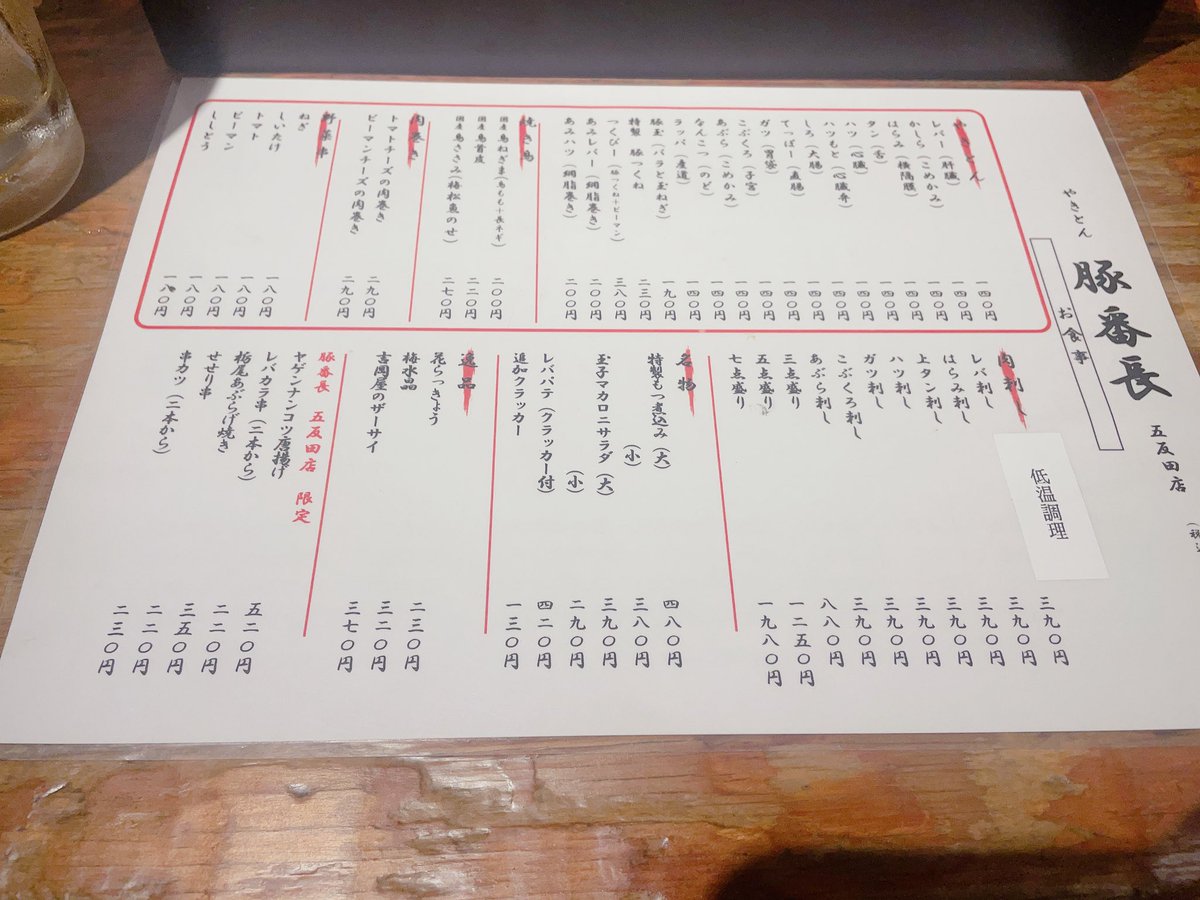 やきとん
豚番長
五反田店
お食事
やきとん
レバー（肝臓） 一四〇円
かしら（こめかみ） 一四〇円
はらみ（横隔膜） 一四〇円
タン（舌） 一四〇円
ハツ（心臓） 一四〇円
ハツもと（心臓弁） 一四〇円
しろ（大腸） 一四〇円
てっぽー（直腸） 一四〇円
ガツ（胃袋） 一四〇円
こぶくろ（子宮） 一四〇円
あぶら（こめかみ） 一四〇円
なんこつ（のど） 一四〇円
ラッパ（産道） 一四〇円
豚玉（バラと玉ねぎ） 一九〇円
特製 豚つくね 二三〇円
つくぴー（豚つくね＋ピーマン） 三八〇円
あみレバー（網脂巻き） 二〇〇円
あみハツ（網脂巻き） 二〇〇円
焼き鳥
国産鳥ねぎま（鳥もも＋長ネギ） 二〇〇円
国産鳥首皮 二二〇円
国産鳥ささみ（梅松魚のせ） 二七〇円
肉巻き
トマトチーズの肉巻き 二九〇円
ピーマンチーズの肉巻き 二九〇円
野菜串
ねぎ 一八〇円
しいたけ 一八〇円
トマト 一八〇円
ピーマン 一八〇円
ししとう 一八〇円
肉刺し
低温調理
レバ刺し 三九〇円
はらみ刺し 三九〇円
上タン刺し 三九〇円
ハツ刺し 三九〇円
ガツ刺し 三九〇円
こぶくろ刺し 三九〇円
あぶら刺し 三九〇円
三点盛り 八八〇円
五点盛り 一二五〇円
七点盛り 一九八〇円
名物
特製もつ煮込み（大） 四八〇円
（小） 三八〇円
玉子マカロニサラダ（大） 三九〇円
（小） 二九〇円
レバパテ（クラッカー付） 四二〇円
追加クラッカー 一三〇円
逸品
花らっきょう 二三〇円
梅水晶 三二〇円
吉岡屋のザーサイ 三七〇円
豚番長 五反田店 限定
ヤゲンナンコツ唐揚げ 五二〇円
レバカラ串（二本から） 二二〇円
栃尾あぶらげ焼き 三五〇円
せせり串 二二〇円
串カツ（二本から） 二三〇円